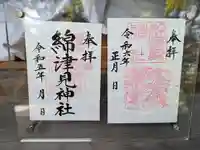 奉拝
綿津見神社
令和五年 月 日
奉拝
令和六年
正月 日